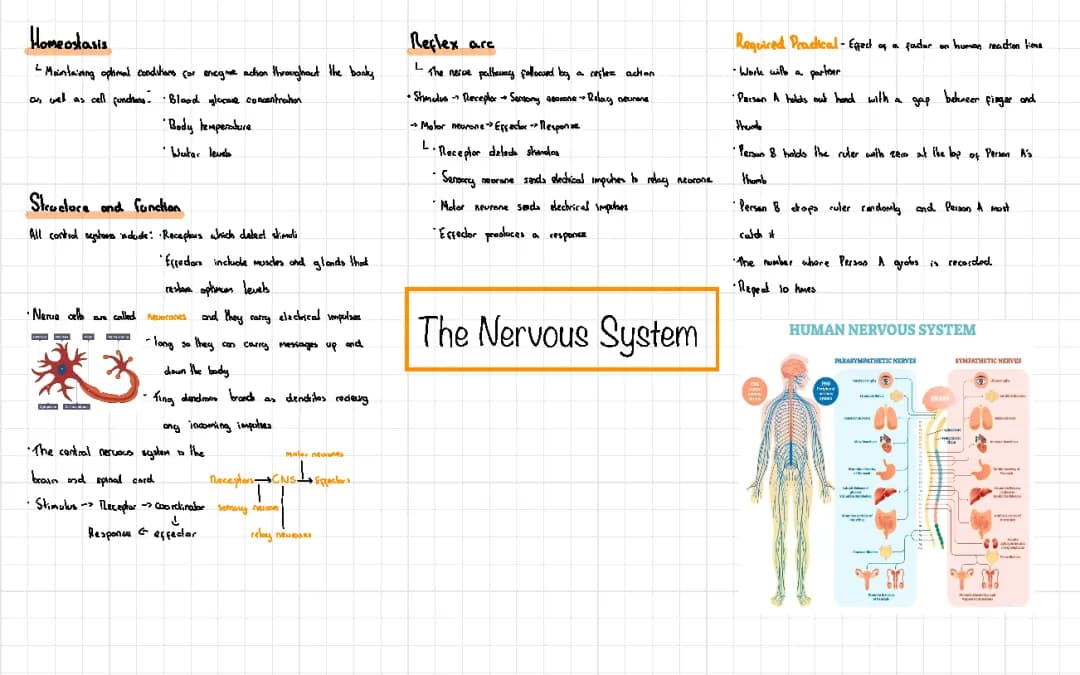 Homeostasis
Maintaining optimal conditions for enzyme action throughout the body
as well as cell functions:
· Blood glucose concentration
· Body temperature
· Water levels
Structure and function
All control systems include: · Receptors which detect stimuli
· Effectors include muscles and glands that
restore optimum levels
· Nerve cells are called neurones and they carry electrical impulses
- long so they can carry messages up and
down the body
- Tiny dendrons branch as dendrites receiving
any incoming impulses
· The central nervous system is the
brain and spinal cord.
· Stimulus -> Receptor -> coordinator
↓
Response ← effector
motor neurones
Receptors → CNS → Effectors
sensory neurone
relay neurones
Reflex arc
The nerve pathway followed by a reflex action
· Stimulus → Receptor → Sensory neurone → Relay neurone
→ Motor neurone → Effector → Response
· Receptor detects stimulus
· Sensory neurone sends electrical impulses to relay neurone
· Motor neurone sends electrical impulses
· Effector produces a response
The Nervous System
Required Practical - Effect of a factor on human reaction time
· Work with a partner
· Person A holds out hand with a gap between finger and
thumb
· Person B holds the ruler with zero at the top of Person A's
thumb
· Person B drops ruler randomly and Person A must
catch it
· The number where Person A grabs is recorded.
· Repeat 10 times
HUMAN NERVOUS SYSTEM
PARASYMPATHETIC NERVES
SYMPATHETIC NERVES
BRAIN